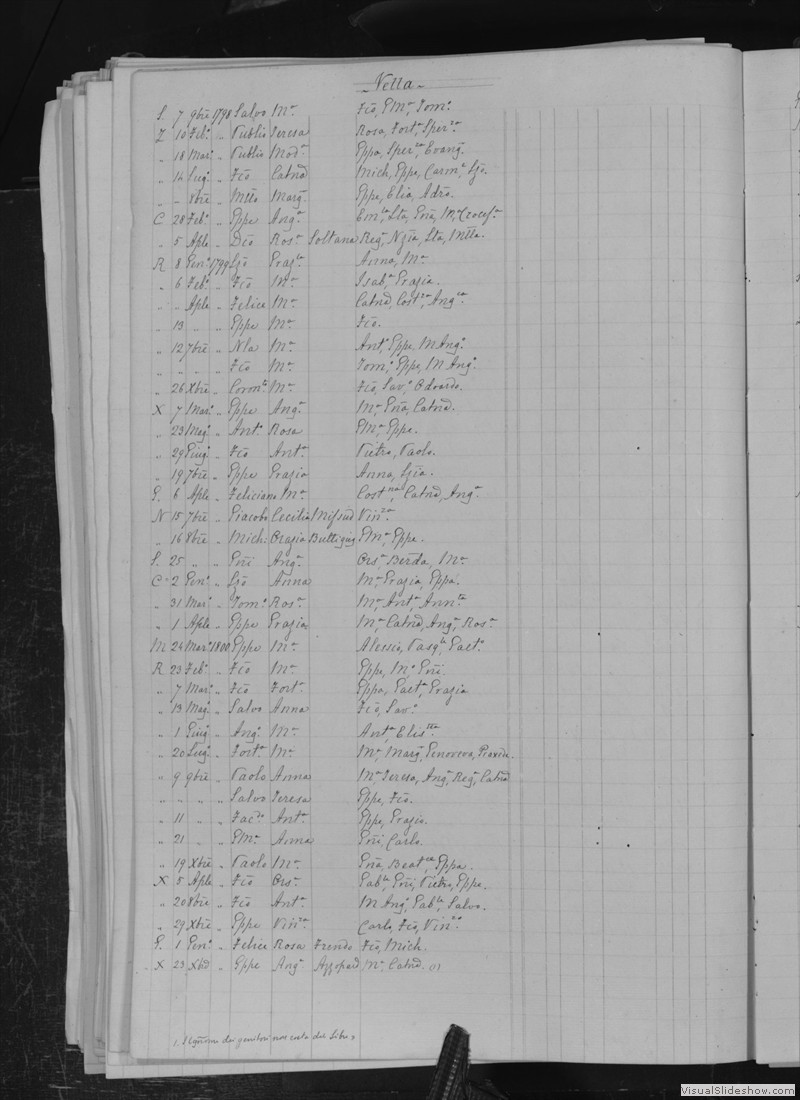 Vella
S. 7 9bre 1798 Salvo Mª Fco, GMª, Tomª
Z 10 Febº „ Publio Teresa Rosa, Fortª, Sperza
„ 18 Marº „ Publio Modª Gppa, Sperza, Evangª
„ 14 Lugº „ Fco Catnª Mich, Gppe, Carmª
„ - 8bre „ Margª Gppe, Elia, Adrº.
C 28 Febº „ Gppe Angª
„ 5 Aple „ Rosª Soltana Regª
R 8 Genº 1799 Grazª Anna, Mª
„ 6 Febº „ Fco Mª Isabª, Grazia.
„ „ Aple „ Felice Mª Catnª, Costza, Angca
„ 13 „ „ Gppe Mª Fco.
„ 12 7bre „ Nla Mª Antº, Gppe, M Angª
„ „ „ „ Fco Mª Tomº, Gppe, M Angª
„ 26 Xbre „ Mª Fco, Savº, Odoardo.
X 7 Marº „ Gppe Angª Mª, Gnª, Catnª.
„ 23 Magº „ Antº Rosa GMª, Gppe.
„ 29 Giugº „ Fco Antª Pietro, Paolo.
„ 19 7bre „ Gppe Grazia Anna,
G. 6 Aple „ Feliciano Mª Costnza, Catnª, Angª
N 15 7bre „ Giacobo Cecilia Mifsud Vinza
„ 16 8bre „ Mich: Grazia Buttigieg GMª, Gppe.
S. 25 „ „ Gni Angª Orsª, Mª
C 2 Genº „ Anna Mª, Grazia, Gppa.
„ 31 Marº „ Tomº Rosª Mª, Antª, Annta
„ 1 Aple „ Gppe Grazia Mª, Catnª, Angª, Rosª
M 24 Marº 1800 Gppe Mª Alessio, Pasqle, Gaetº
R 23 Febº „ Fco Mª Gppe, Mª, Gni.
„ 7 Marº „ Fco Fortª Gppa, Gaetª, Grazia
„ 13 Magº „ Salvo Anna Fco, Savº
„ 1 Giugº „ Angº Mª Antª,
„ 20 Lugº „ Fortº Mª Mª, Margª, Genoveva,
„ 9 9bre „ Paolo Anna Mª, Teresa, Angª, Regª, Catnª
„ „ „ „ Salvo Teresa Gppe, Fco.
„ 11 „ „ Antª Gppe, Grazia.
„ 21 „ „ GMª Anna Gni, Carlo.
„ 19 Xbre „ Paolo Mª Gnª, Beatce, Gppa.
X 5 Aple „ Fco Orsª Gable, Gni, Pietro, Gppe.
„ 20 8bre „ Fco Antª M Angº, Gable, Salvo.
„ 29 Xbre „ Gppe Vinza Carlo, Fco, Vinzo
G. 1 Genº „ Felice Rosa Frendo Fco, Mich.
X 23 Xbre „ Gppe Angª Azzopard Mª, Catnª. (1)
1. Il cognome dei genitori non costa dai Libri
VisualSlideshow.com